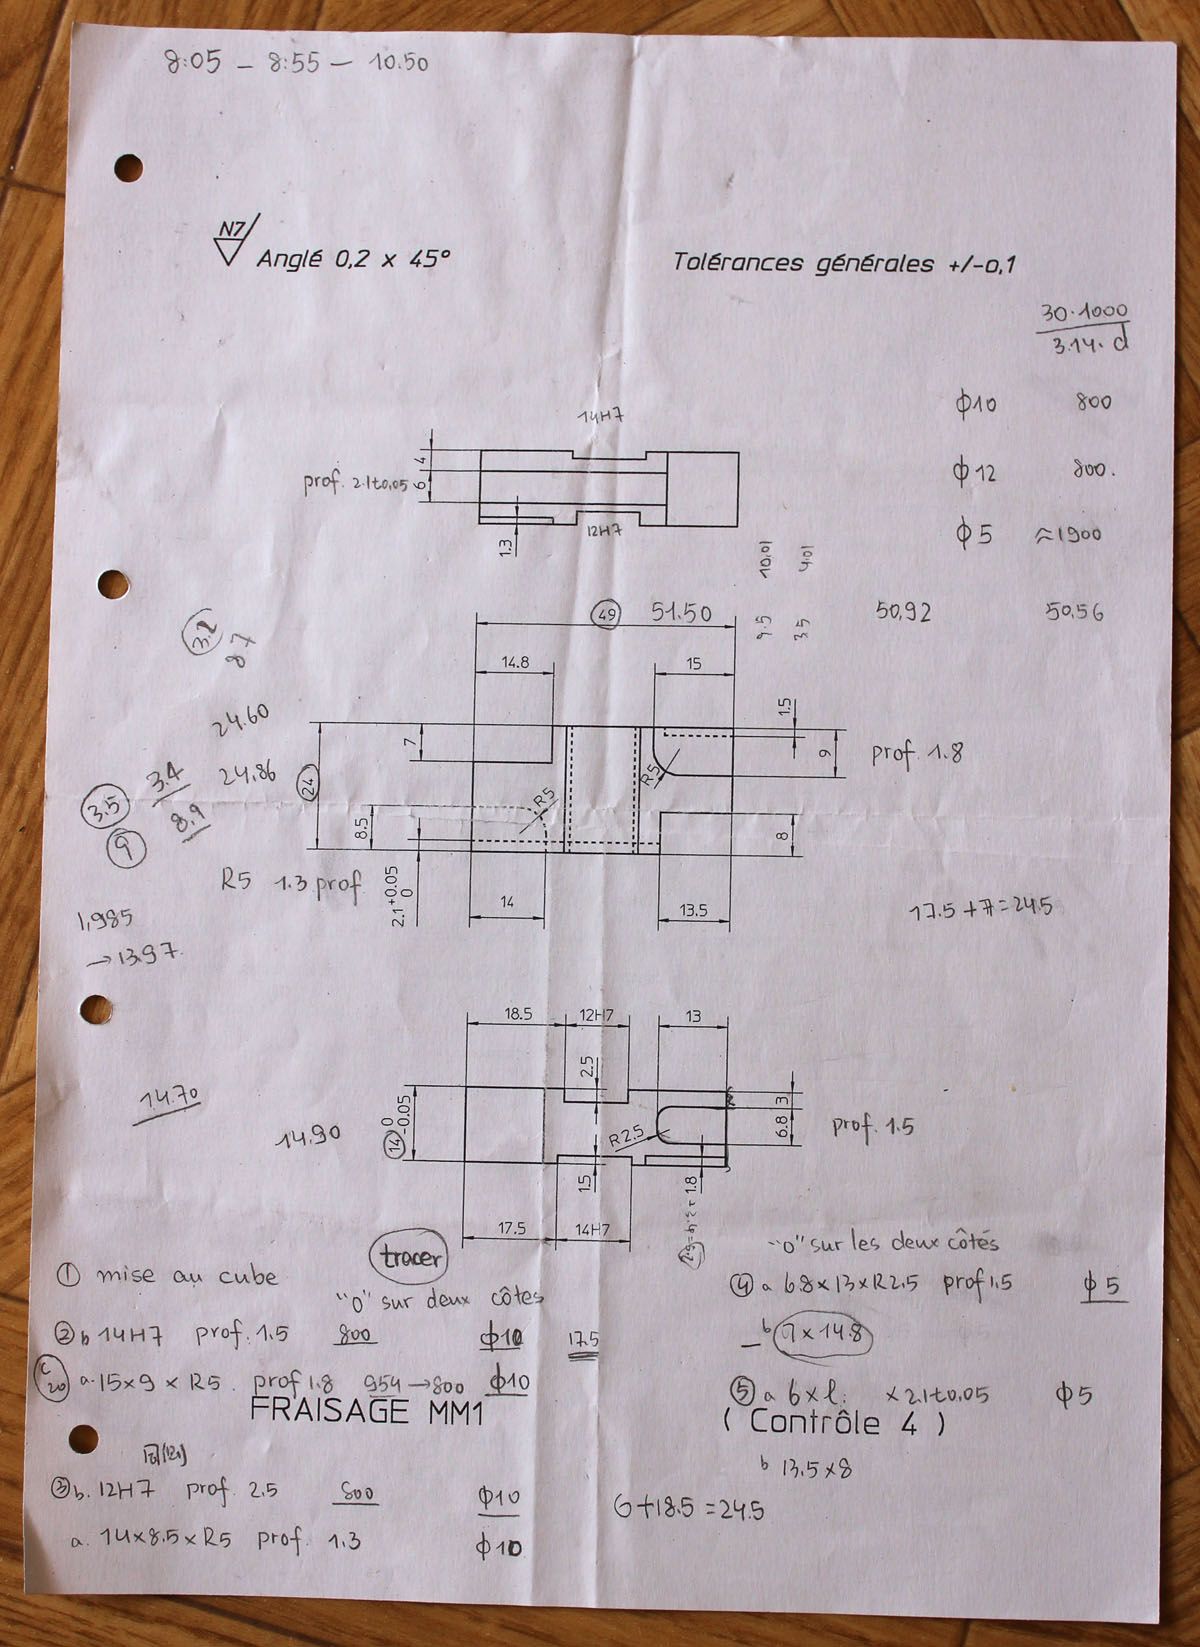 8:05 – 8:55 – 10.50
N7
Anglé 0,2 x 45°
Tolérances générales +/-0,1
30·1000
3.14· d
ϕ10 800
ϕ12 800.
ϕ5 ≈1900
14H7
4
prof. 2.1±0.05
6
12H7
1.3
10.01
4.01
9.5
3.5
49
51.50
50,92
50,56
3.2
8.7
14.8
15
1.5
24.60
7
9
prof. 1.8
R5
3.4
24,86
24
3.5
8.9
9
R5
8.5
8
R5 1.3 prof.
2.1 +0.05
0
14
13.5
17.5+7=24.5
1,985
→13.97
18.5
12H7
13
2.5
14.70
14.90
14 0
-0.05
3
6.8
R2.5
prof. 1.5
1.5
1.8
17.5
14H7
tracer
"0" sur les deux côtés
① mise au cube
"0" sur deux côtes
④ a 6.8×13×R2.5 prof 1.5 ϕ5
② b 14H7 prof. 1.5 800 ϕ10 17.5
– b 7×14.8
c
20
a. 15×9 × R5. prof 1.8 954→800 ϕ10
⑤ a 6×l. × 2.1±0.05 ϕ5
FRAISAGE MM1
( Contrôle 4 )
b 13.5×8
③ b. 12H7 prof 2.5 800 ϕ10
6+18.5=24.5
a. 14×8.5×R5 prof. 1.3 ϕ10